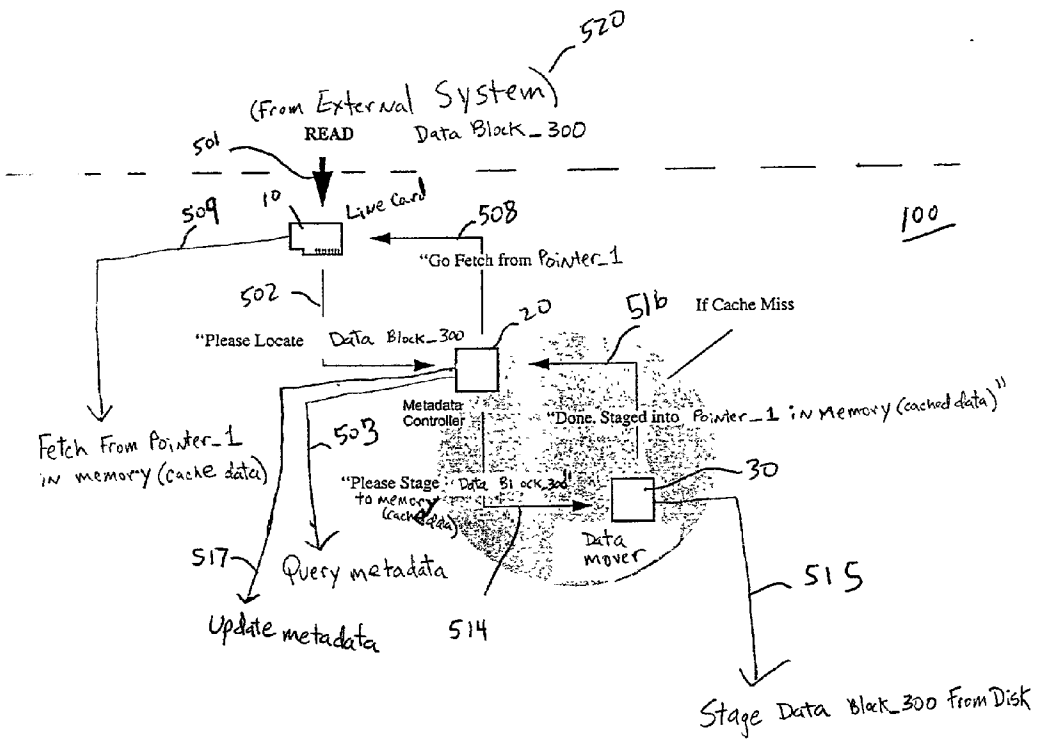 520
(From External System)
READ Data Block_300
501
509
10
Line Card
508
100
"Go Fetch from Pointer_1
502
20
516
If Cache Miss
"Please Locate Data Block_300
Metadata
Controller
"Done. Staged into Pointer_1 in Memory (cached data)"
Fetch From Pointer_1
in memory (cache data)
503
"Please Stage Data Block_300"
to memory
(cached data)
30
Data
mover
517
Query metadata
515
Update metadata
514
Stage Data Block_300 From Disk